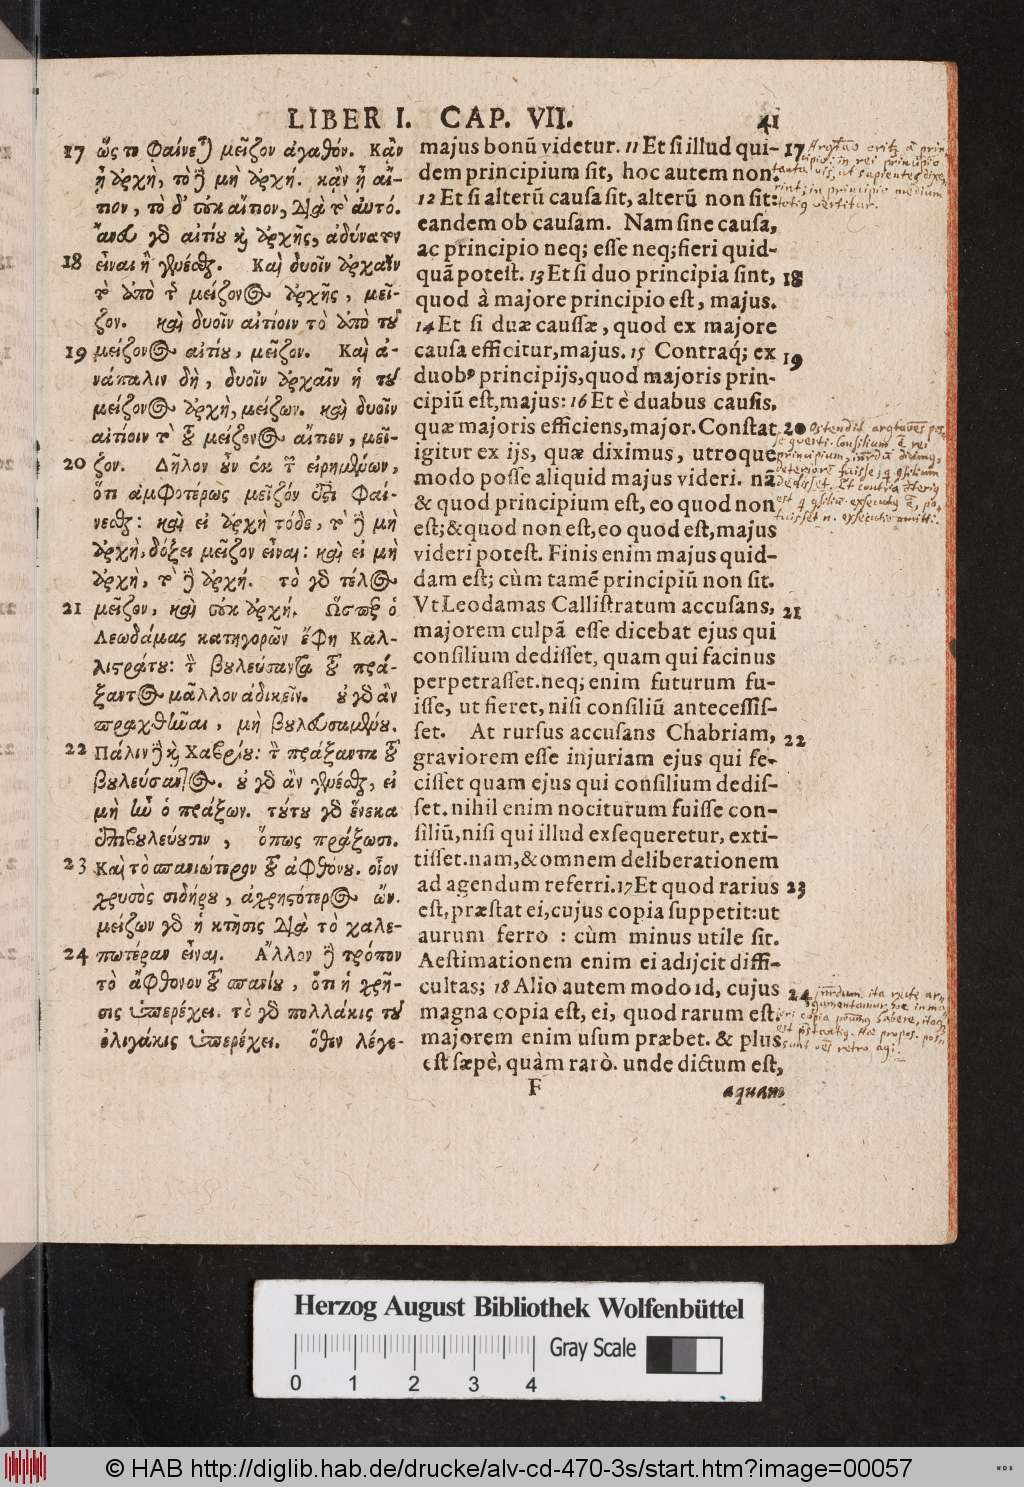 LIBER I. CAP. VII. 41
17 ὥς τε φαίνεται μεῖζον ἀγαθόν. Κἂν
ᾖ ἀρχὴ, τὸ ἢ μὴ ἀρχή. κἂν ᾖ αἴ-
τιον, τὸ δ' οὐκ αἴτιον, διὰ τὸ αὐτό.
ἄνευ γὰρ αἰτίου καὶ ἀρχῆς, ἀδύνατον
18 εἶναι ἢ γενέσθαι. Καὶ δυοῖν ἀρχαῖν
τὸ ἀπὸ τῆς μείζονος ἀρχῆς, μεῖ-
ζον. καὶ δυοῖν αἰτίοιν τὸ ἀπὸ τοῦ
19 μείζονος αἰτίου, μεῖζον. Καὶ ἀ-
νάπαλιν δὴ, δυοῖν ἀρχαῖν ἡ τοῦ
μείζονος ἀρχὴ, μείζων. καὶ δυοῖν
αἰτίοιν τὸ τοῦ μείζονος αἴτιον, μεῖ-
20 ζον. Δῆλον οὖν ἐκ τῶν εἰρημένων,
ὅτι ἀμφοτέρως μεῖζόν ἐστι φαί-
νεσθαι: καὶ εἰ ἀρχὴ τόδε, τὸ δὲ μὴ
ἀρχὴ, δόξει μεῖζον εἶναι: καὶ εἰ μὴ
ἀρχὴ, τὸ δὲ ἀρχή. τὸ γὰρ τέλος
21 μεῖζον, καὶ οὐκ ἀρχή. Ὥσπερ ὁ
Λεωδάμας κατηγορῶν ἔφη Καλ-
λιστράτου: τὸν βουλεύσαντα τοῦ πρά-
ξαντος μᾶλλον ἀδικεῖν. οὐ γὰρ ἂν
πραχθῆναι, μὴ βουλευσαμένου.
22 Πάλιν δὲ καὶ Χαβρίου: τὸν πράξαντα τοῦ
βουλεύσαντος. οὐ γὰρ ἂν γενέσθαι, εἰ
μὴ ἦν ὁ πράξων. τούτου γὰρ ἕνεκα
ἐπιβουλεύουσιν, ὅπως πράξωσι.
23 Καὶ τὸ σπανιώτερον τοῦ ἀφθόνου. οἷον
χρυσὸς σιδήρου, ἀχρηστότερος ὤν.
μείζων γὰρ ἡ κτῆσις διὰ τὸ χαλε-
24 πωτέραν εἶναι. Ἄλλον δὲ τρόπον
τὸ ἄφθονον τοῦ σπανίου, ὅτι ἡ χρῆ-
σις ὑπερέχει. τὸ γὰρ πολλάκις τοῦ
ὀλιγάκις ὑπερέχει. ὅθεν λέγε-
majus bonũ videtur. 11 Et si illud qui- 17
dem principium sit, hoc autem non.
12 Et si alterũ causa sit, alterũ non sit:
eandem ob causam. Nam sine causa,
ac principio neq; esse neq; fieri quid-
quã potest. 13 Et si duo principia sint, 18
quod à majore principio est, majus.
14 Et si duæ caussæ, quod ex majore
causa efficitur, majus. 15 Contraq́; ex 19
duobꝰ principijs, quod majoris prin-
cipiũ est, majus: 16 Et è duabus causis,
quæ majoris efficiens, major. Constat 20
igitur ex ijs, quæ diximus, utroque
modo posse aliquid majus videri. nã
& quod principium est, eo quod non
est; & quod non est, eo quod est, majus
videri potest. Finis enim majus quid-
dam est; cùm tamẽ principiũ non sit.
Vt Leodamas Callistratum accusans, 21
majorem culpã esse dicebat ejus qui
consilium dedisset, quam qui facinus
perpetrasset. neq; enim futurum fu-
isse, ut fieret, nisi consiliũ antecessis-
set. At rursus accusans Chabriam, 22
graviorem esse injuriam ejus qui fe-
cisset quam ejus qui consilium dedis-
set. nihil enim nociturum fuisse con-
siliũ, nisi qui illud exsequeretur, exti-
tisset. nam, & omnem deliberationem
ad agendum referri. 17 Et quod rarius 23
est, præstat ei, cujus copia suppetit: ut
aurum ferro : cùm minus utile sit.
Aestimationem enim ei adijcit diffi-
cultas; 18 Alio autem modo id, cujus 24
magna copia est, ei, quod rarum est.
majorem enim usum præbet. & plus
est sæpè, quàm rarò. unde dictum est,
F aquam
Herzog August Bibliothek Wolfenbüttel
Gray Scale
0 1 2 3 4
© HAB http://diglib.hab.de/drucke/alv-cd-470-3s/start.htm?image=00057